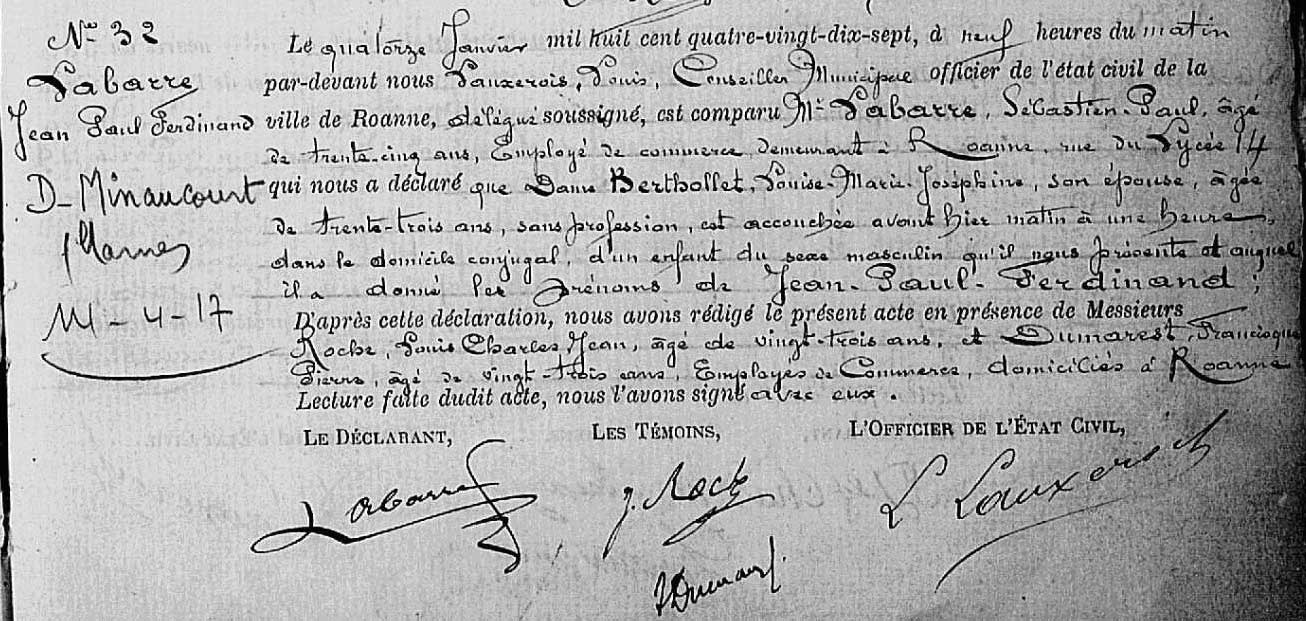 No 32
Labarre
Jean Paul Ferdinand
D- Minaucourt
Marne
11-4-17
Le quatorze Janvier mil huit cent quatre-vingt-dix-sept, à neuf heures du matin
par-devant nous Lauxerois, Louis, Conseiller Municipal officier de l'état civil de la
ville de Roanne, délégué soussigné, est comparu Mr Labarre, Sébastien-Paul, âgé
de trente-cinq ans, Employé de commerce demeurant à Roanne, rue du Lycée 14
qui nous a déclaré que Dame Berthollet, Louise-Marie-Joséphine, son épouse, âgée
de trente-trois ans, sans profession, est accouchée avant hier matin à une heure,
dans le domicile conjugal, d'un enfant du sexe masculin qu'il nous présente et auquel
il a donné les prénoms de Jean-Paul-Ferdinand ;
D'après cette déclaration, nous avons rédigé le présent acte en présence de Messieurs
Roche, Louis Charles Jean, âgé de vingt-trois ans, et Dumarest, Francisque
Pierre, âgé de vingt-trois ans, Employés de Commerce, domiciliés à Roanne
Lecture faite dudit acte, nous l'avons signé avec eux.
LE DÉCLARANT, LES TÉMOINS, L'OFFICIER DE L'ÉTAT CIVIL,
Labarre J. Roche L Lauxerois